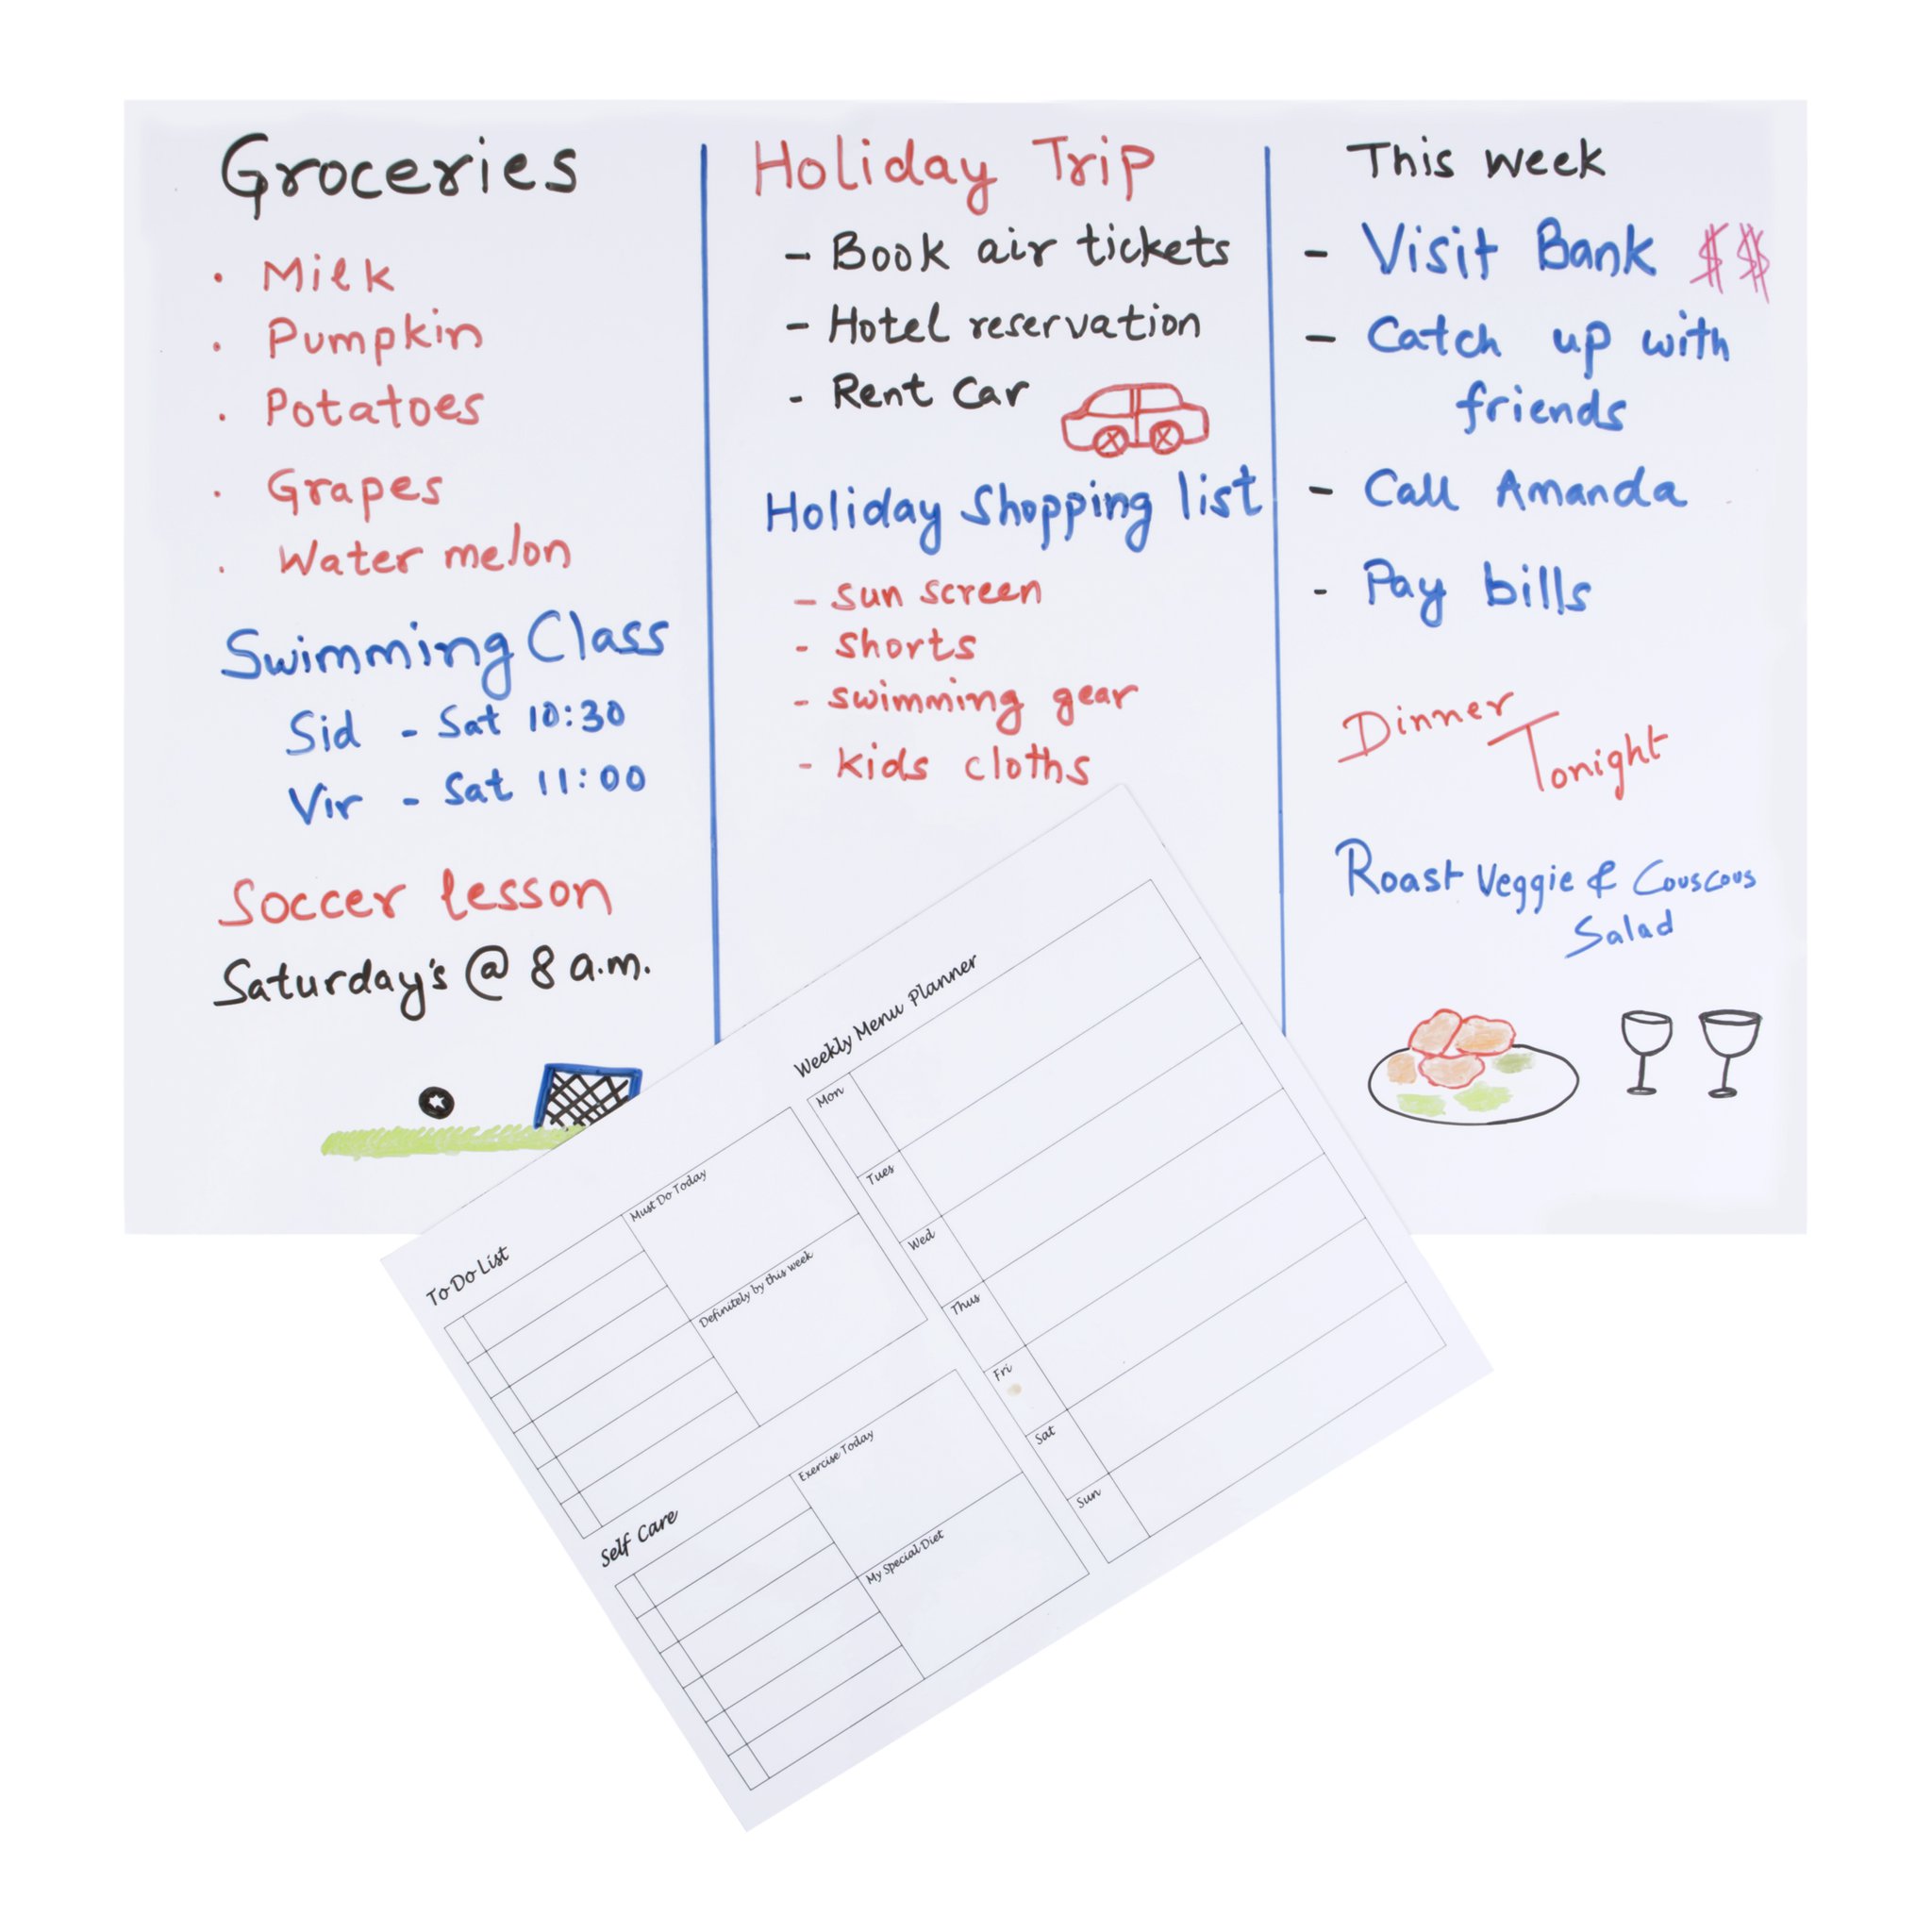 Groceries
• Milk
• Pumpkin
• Potatoes
• Grapes
• Water melon
Swimming Class
Sid - Sat 10:30
Vir - Sat 11:00
Soccer lesson
Saturday's @ 8 a.m.
Holiday Trip
- Book air tickets
- Hotel reservation
- Rent Car
Holiday Shopping list
- Sun screen
- Shorts
- swimming gear
- kids cloths
This week
- Visit Bank $$
- Catch up with
friends
- Call Amanda
- Pay bills
Dinner
Tonight
Roast Veggie & Couscous
Salad
To Do List
Must Do Today
Definitely by this week
Self Care
Exercise Today
My Special Diet
Weekly Menu Planner
Mon
Tues
Wed
Thus
Fri
Sat
Sun